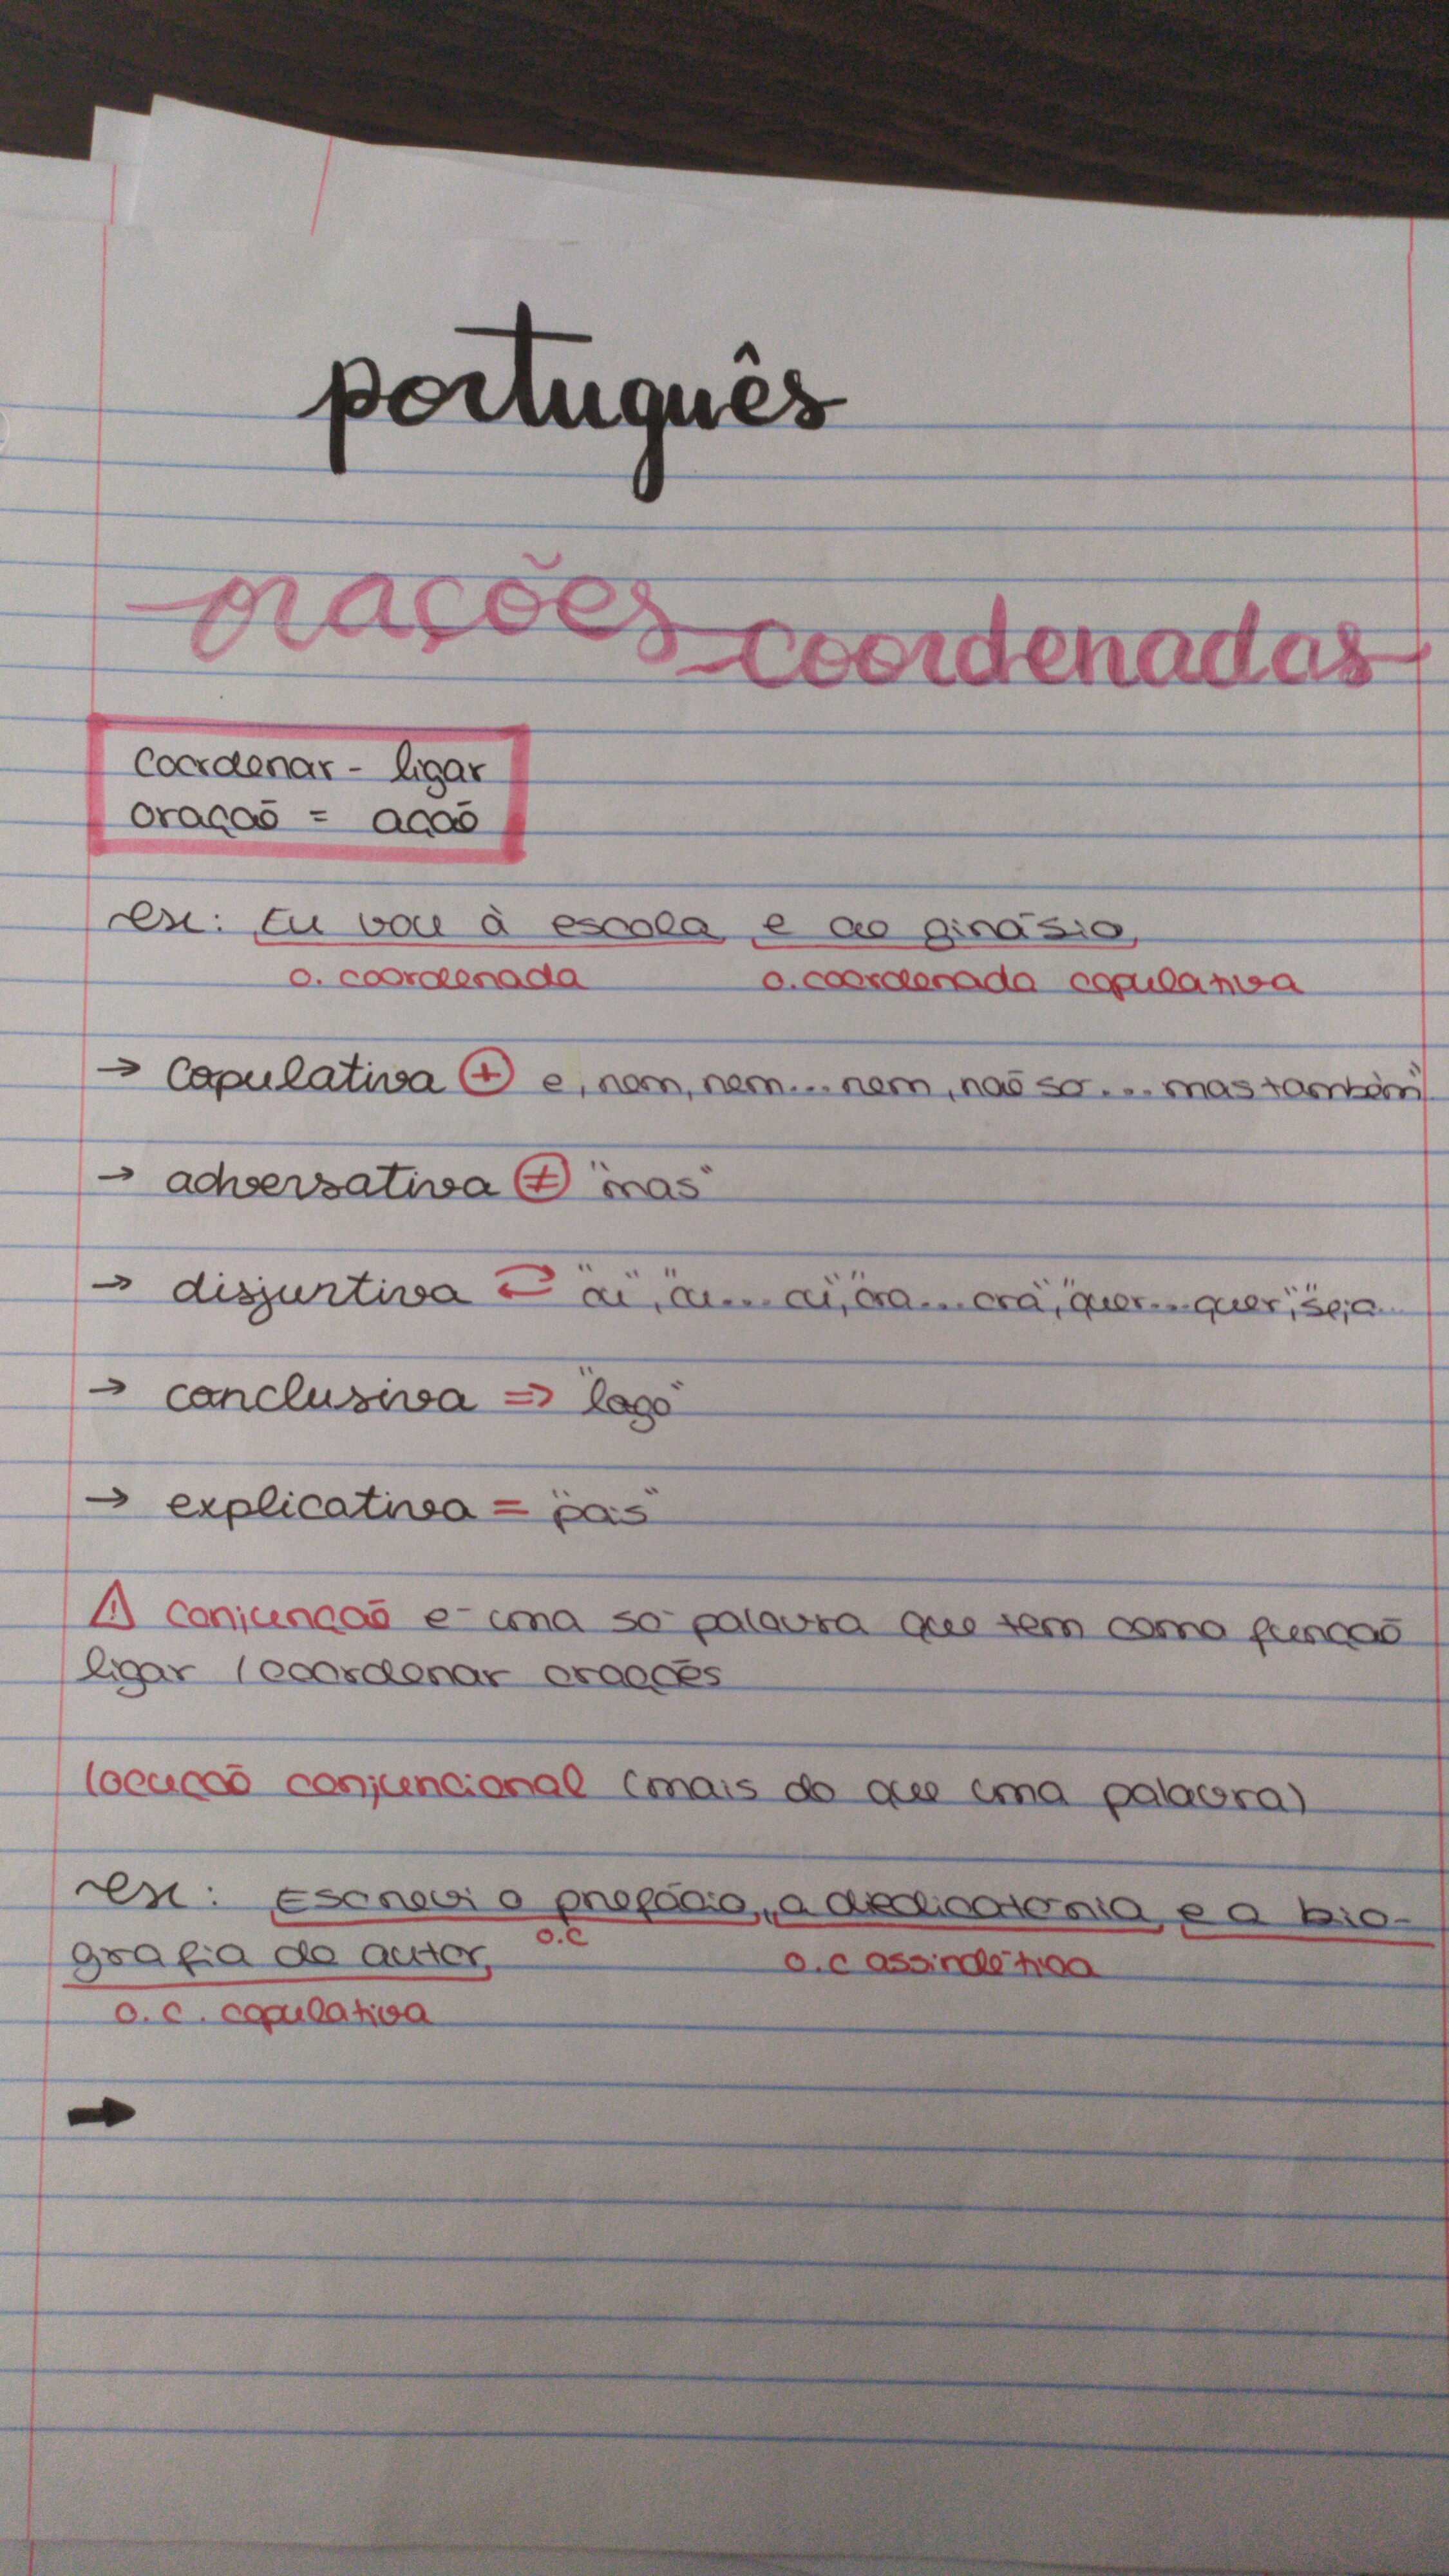 português
orações coordenadas
coordenar - ligar
oração = ação
ex: Eu vou à escola e ao ginásio,
o. coordenada o. coordenada copulativa
→ copulativa ⊕ e, nem, nem... nem, não só... mas também"
→ adversativa ≠ "mas"
→ disjuntiva ⇄ "ou", "ou... ou", "ora... ora", "quer... quer", "seja...
→ conclusiva => "logo"
→ explicativa = "pois"
⚠ conjunção é uma só palavra que tem como função
ligar / coordenar orações
locução conjuncional (mais do que uma palavra)
ex: Escrevi o prefácio, a dedicatória e a bio-
grafia do autor,
o.c o.c assindética
o. c. copulativa
→